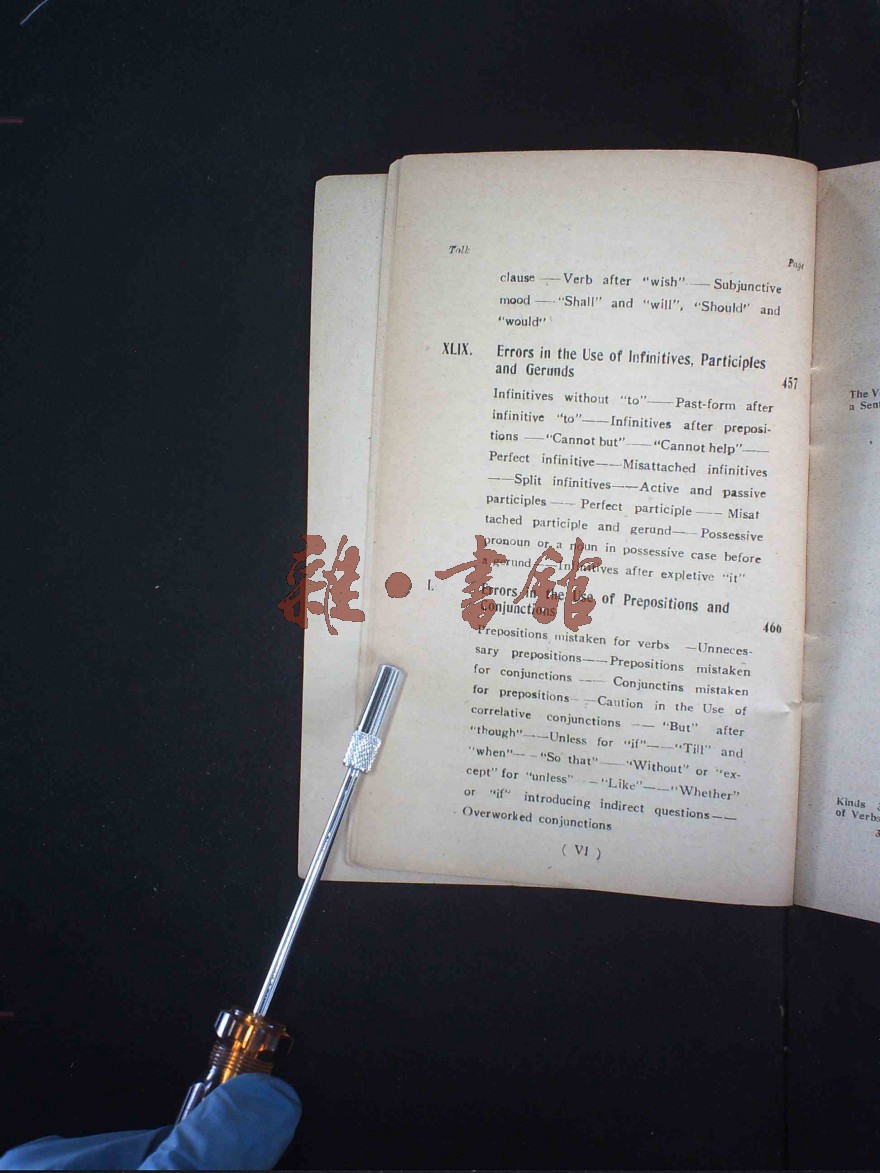 Talk Page
clause — Verb after “wish” — Subjunctive
mood — “Shall” and “will”, “Should” and
“would”
XLIX. Errors in the Use of Infinitives, Participles
and Gerunds 457
Infinitives without “to” — Past-form after
infinitive “to” — Infinitives after preposi-
tions — “Cannot but” — “Cannot help” —
Perfect infinitive — Misattached infinitives
— Split infinitives — Active and passive
participles — Perfect participle — Misat
tached participle and gerund — Possessive
pronoun or a noun in possessive case before
a gerund — Infinitives after expletive “it”
雜·書館
I. Errors in the Use of Prepositions and
Conjunctions 460
Prepositions mistaken for verbs — Unneces-
sary prepositions — Prepositions mistaken
for conjunctions — Conjunctins mistaken
for prepositions — Caution in the Use of
correlative conjunctions — “But” after
“though” — Unless for “if” — “Till” and
“when” — “So that” — “Without” or “ex-
cept” for “unless” — “Like” — “Whether”
or “if” introducing indirect questions —
Overworked conjunctions
( VI )
The V
a Sent
Kinds
of Verbs
3